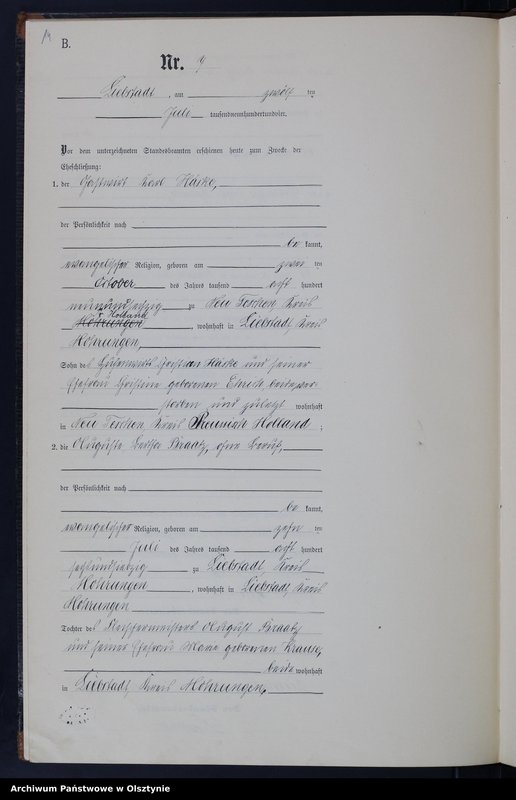 B.
Nr. 9
Liebstadt, am zwölf ten
Juli tausendneunhundertundvier.
Vor dem unterzeichneten Standesbeamten erschienen heute zum Zwecke der
Eheschließung:
1. der Gastwirt Karl Hüske,
der Persönlichkeit nach
be kannt,
evangelischer Religion, geboren am zwei ten
October des Jahres tausend acht hundert
neunundsechzig zu Neu Teschen Kreis
Pr. Holland
Mohrungen, wohnhaft in Liebstadt Kreis
Mohrungen,
Sohn des Christian und seiner
Ehefrau Christine geborenen beide ver-
storben und zuletzt wohnhaft
in Neu Teschen Kreis Preussisch Holland;
2. die Auguste Bertha Kraatz, ohne Beruf,
der Persönlichkeit nach
be kannt,
evangelischer Religion, geboren am zehn ten
Juli des Jahres tausend acht hundert
sechsundsiebzig zu Liebstadt Kreis
Mohrungen, wohnhaft in Liebstadt Kreis
Mohrungen
Tochter des Fleischermeisters August Kraatz
und seiner Ehefrau Marie geborenen Krause,
beide wohnhaft
in Liebstadt Kreis Mohrungen,
Archiwum Państwowe w Olsztynie